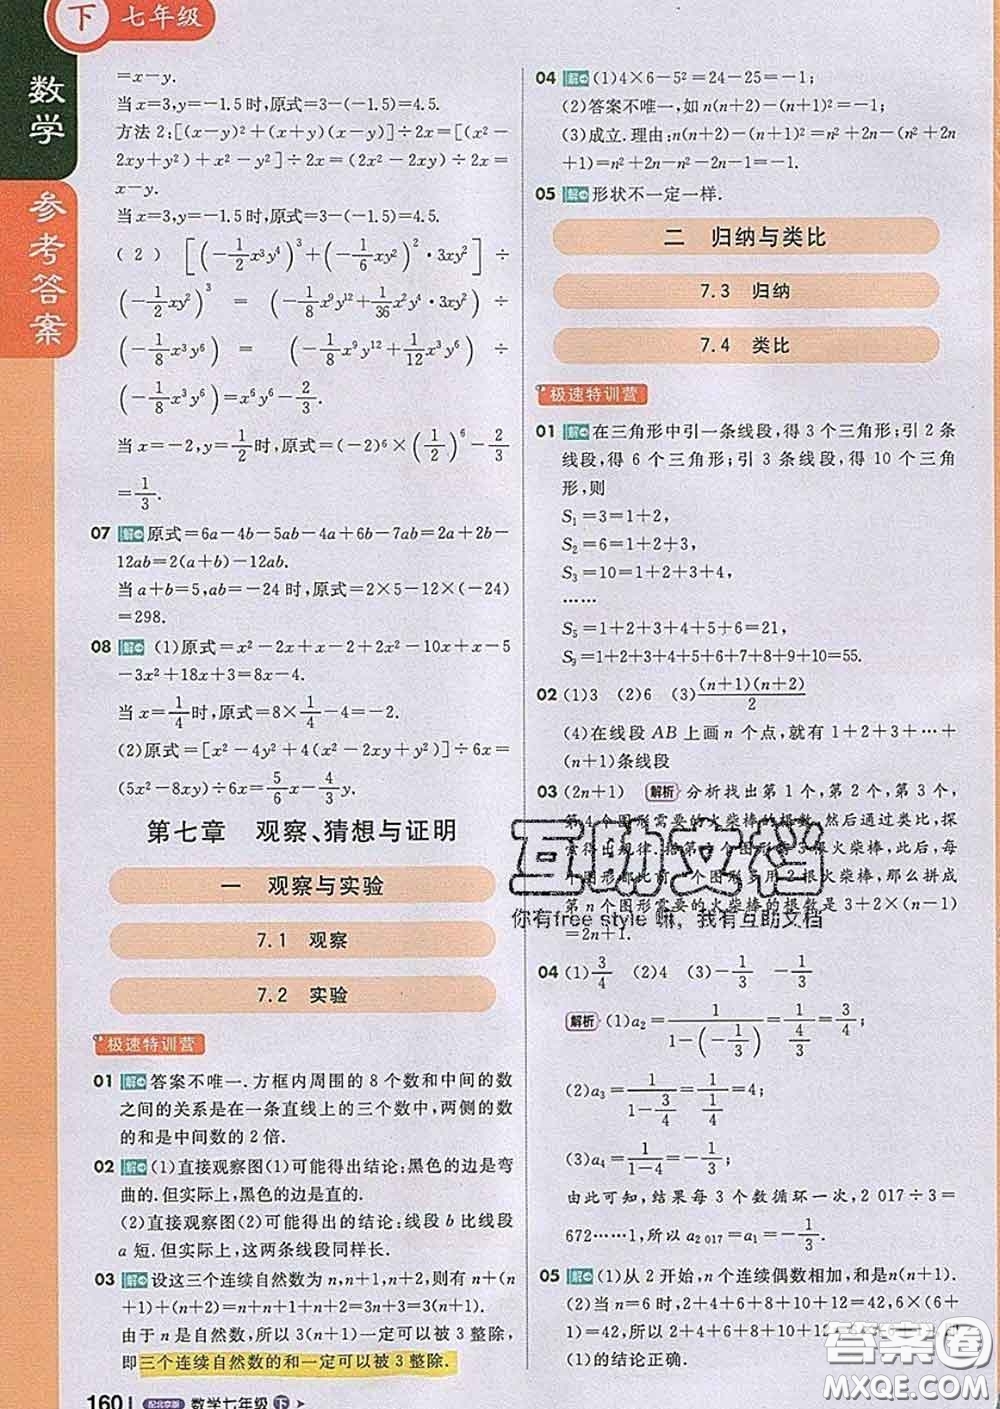 下 七年级
数学
参考答案
=x-y.
当x=3,y=-1.5时,原式=3-(-1.5)=4.5.
方法2:[(x-y)²+(x+y)(x-y)]÷2x=[(x²-
2xy+y²)+x²-y²]÷2x=(2x²-2xy)÷2x=
x-y.
当x=3,y=-1.5时,原式=3-(-1.5)=4.5.
(2) [(-1/2x³y⁴)³+(-1/6xy²)²·3xy²]÷
(-1/2xy²)³=(-1/8x⁹y¹²+1/36x²y⁴·3xy²)÷
(-1/8x³y⁶)=(-1/8x⁹y¹²+1/12x³y⁶)÷
(-1/8x³y⁶)=x⁶y⁶-2/3.
当x=-2,y=1/2时,原式=(-2)⁶×(1/2)⁶-2/3
=1/3.
07 解 原式=6a-4b-5ab-4a+6b-7ab=2a+2b-
12ab=2(a+b)-12ab.
当a+b=5,ab=-24时,原式=2×5-12×(-24)
=298.
08 解 (1)原式=x²-2x+x-2+2x²-10x+x-5
-3x²+18x+3=8x-4.
当x=1/4时,原式=8×1/4-4=-2.
(2)原式=[x²-4y²+4(x²-2xy+y²)]÷6x=
(5x²-8xy)÷6x=5/6x-4/3y.
第七章 观察、猜想与证明
一 观察与实验
7.1 观察
7.2 实验
极速特训营
01 解 答案不唯一.方框内周围的8个数和中间的数
之间的关系是在一条直线上的三个数中,两侧的数
的和是中间数的2倍.
02 解 (1)直接观察图(1)可能得出结论:黑色的边是弯
曲的.但实际上,黑色的边是直的.
(2)直接观察图(2)可能得出的结论:线段b比线段
a短.但实际上,这两条线段同样长.
03 解 设这三个连续自然数为n,n+1,n+2,则有n+(n
+1)+(n+2)=n+n+1+n+2=3n+3=3(n+1).
由于n是自然数,所以3(n+1)一定可以被3整除,
即三个连续自然数的和一定可以被3整除.
160 配北京版 数学七年级 下
04 解 (1)4×6-5²=24-25=-1;
(2)答案不唯一,如n(n+2)-(n+1)²=-1;
(3)成立.理由:n(n+2)-(n+1)²=n²+2n-(n²+2n
+1)=n²+2n-n²-2n-1=-1.
05 解 形状不一定一样.
二 归纳与类比
7.3 归纳
7.4 类比
极速特训营
01 解 在三角形中引一条线段,得3个三角形;引2条
线段,得6个三角形;引3条线段,得10个三角
形,则
S₁=3=1+2,
S₂=6=1+2+3,
S₃=10=1+2+3+4,
……
S₅=1+2+3+4+5+6=21,
S₉=1+2+3+4+5+6+7+8+9+10=55.
02 (1)3 (2)6 (3)(n+1)(n+2)/2
(4)在线段AB上画n个点,就有1+2+3+…+
(n+1)条线段
03 (2n+1) 解析 分析找出第1个,第2个,第3个,
第4个图形需要的火柴棒的根数,然后通过类比,探
火柴棒,此后,每
个图形都比前一个图形多用2根火柴棒,那么拼成
第n个图形需要的火柴棒的根数是3+2×(n-1)
=2n+1.
互助文档
你有free style嘛,我有互助文档
04 (1)3/4 (2)4 (3)-1/3 -1/3
解析 (1)a₂=1/(1-(-1/3))=1/(4/3)=3/4;
(2)a₃=1/(1-3/4)=1/(1/4)=4;
(3)a₄=1/(1-4)=-1/3;
由此可知,结果每3个数循环一次,2 017÷3=
672……1,所以a₂ ₀₁₇=a₁=-1/3.
05 解 (1)从2开始,n个连续偶数相加,和是n(n+1).
(2)当n=6时,2+4+6+8+10+12=42,6×(6+
1)=42,所以2+4+6+8+10+12=
(1)的结论正确.
答案圈
MXQE.COM